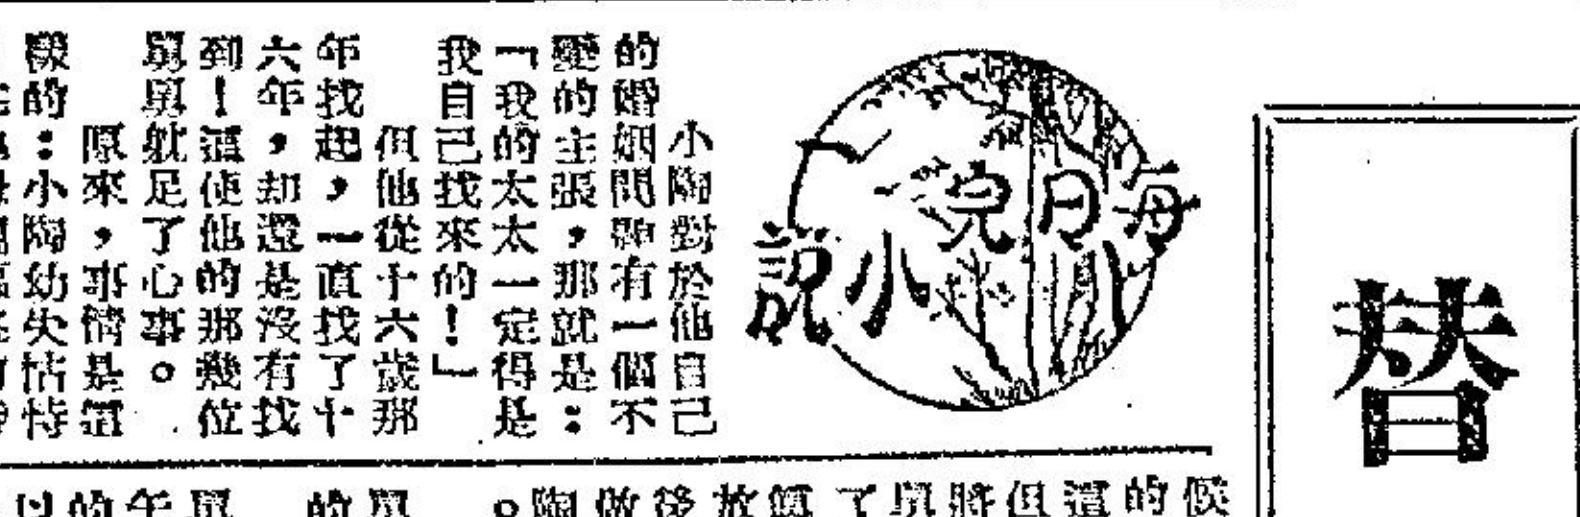 替
每日完小說
小陶對於他自己
的婚姻問題有一個不
變的主張，那就是：
「我的太太一定得是
我自己找來的！」
但他從十六歲那
年找起，一直找了十
六年，却還是沒有找
到！這使他的那幾位
舅舅躭足了心事。
原來，事情是這
樣的：小陶幼失怙恃
候
的
這
但
將
舅
了
放
後
做
陶。